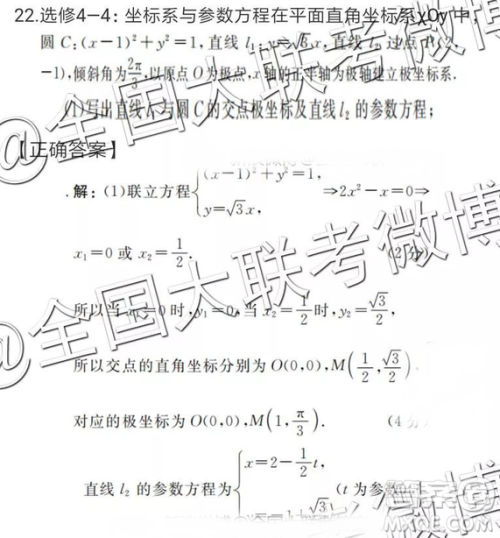 22.选修4-4：坐标系与参数方程在平面直角坐标系xOy中,
圆 C:(x-1)²+y²=1,直线 l₁:y=√3x,直线 l₂ 过点 P(2,
-1),倾斜角为2π/3,以原点O为极点,x轴的正半轴为极轴建立极坐标系.
(1)写出直线l₁与圆C的交点极坐标及直线l₂的参数方程;
【正确答案】
解:(1)联立方程{(x-1)²+y²=1, y=√3x, ⇒2x²-x=0⇒
x₁=0 或 x₂=1/2. (2分)
所以当x₁=0时,y₁=0,当x₂=1/2时,y₂=√3/2,
所以交点的直角坐标分别为O(0,0),M(1/2,√3/2).
对应的极坐标为O(0,0),M(1,π/3). (4分)
直线 l₂ 的参数方程为{x=2-1/2t, (t 为参数)
=-1+√3
@全国大联考微博
@全国大联考微博